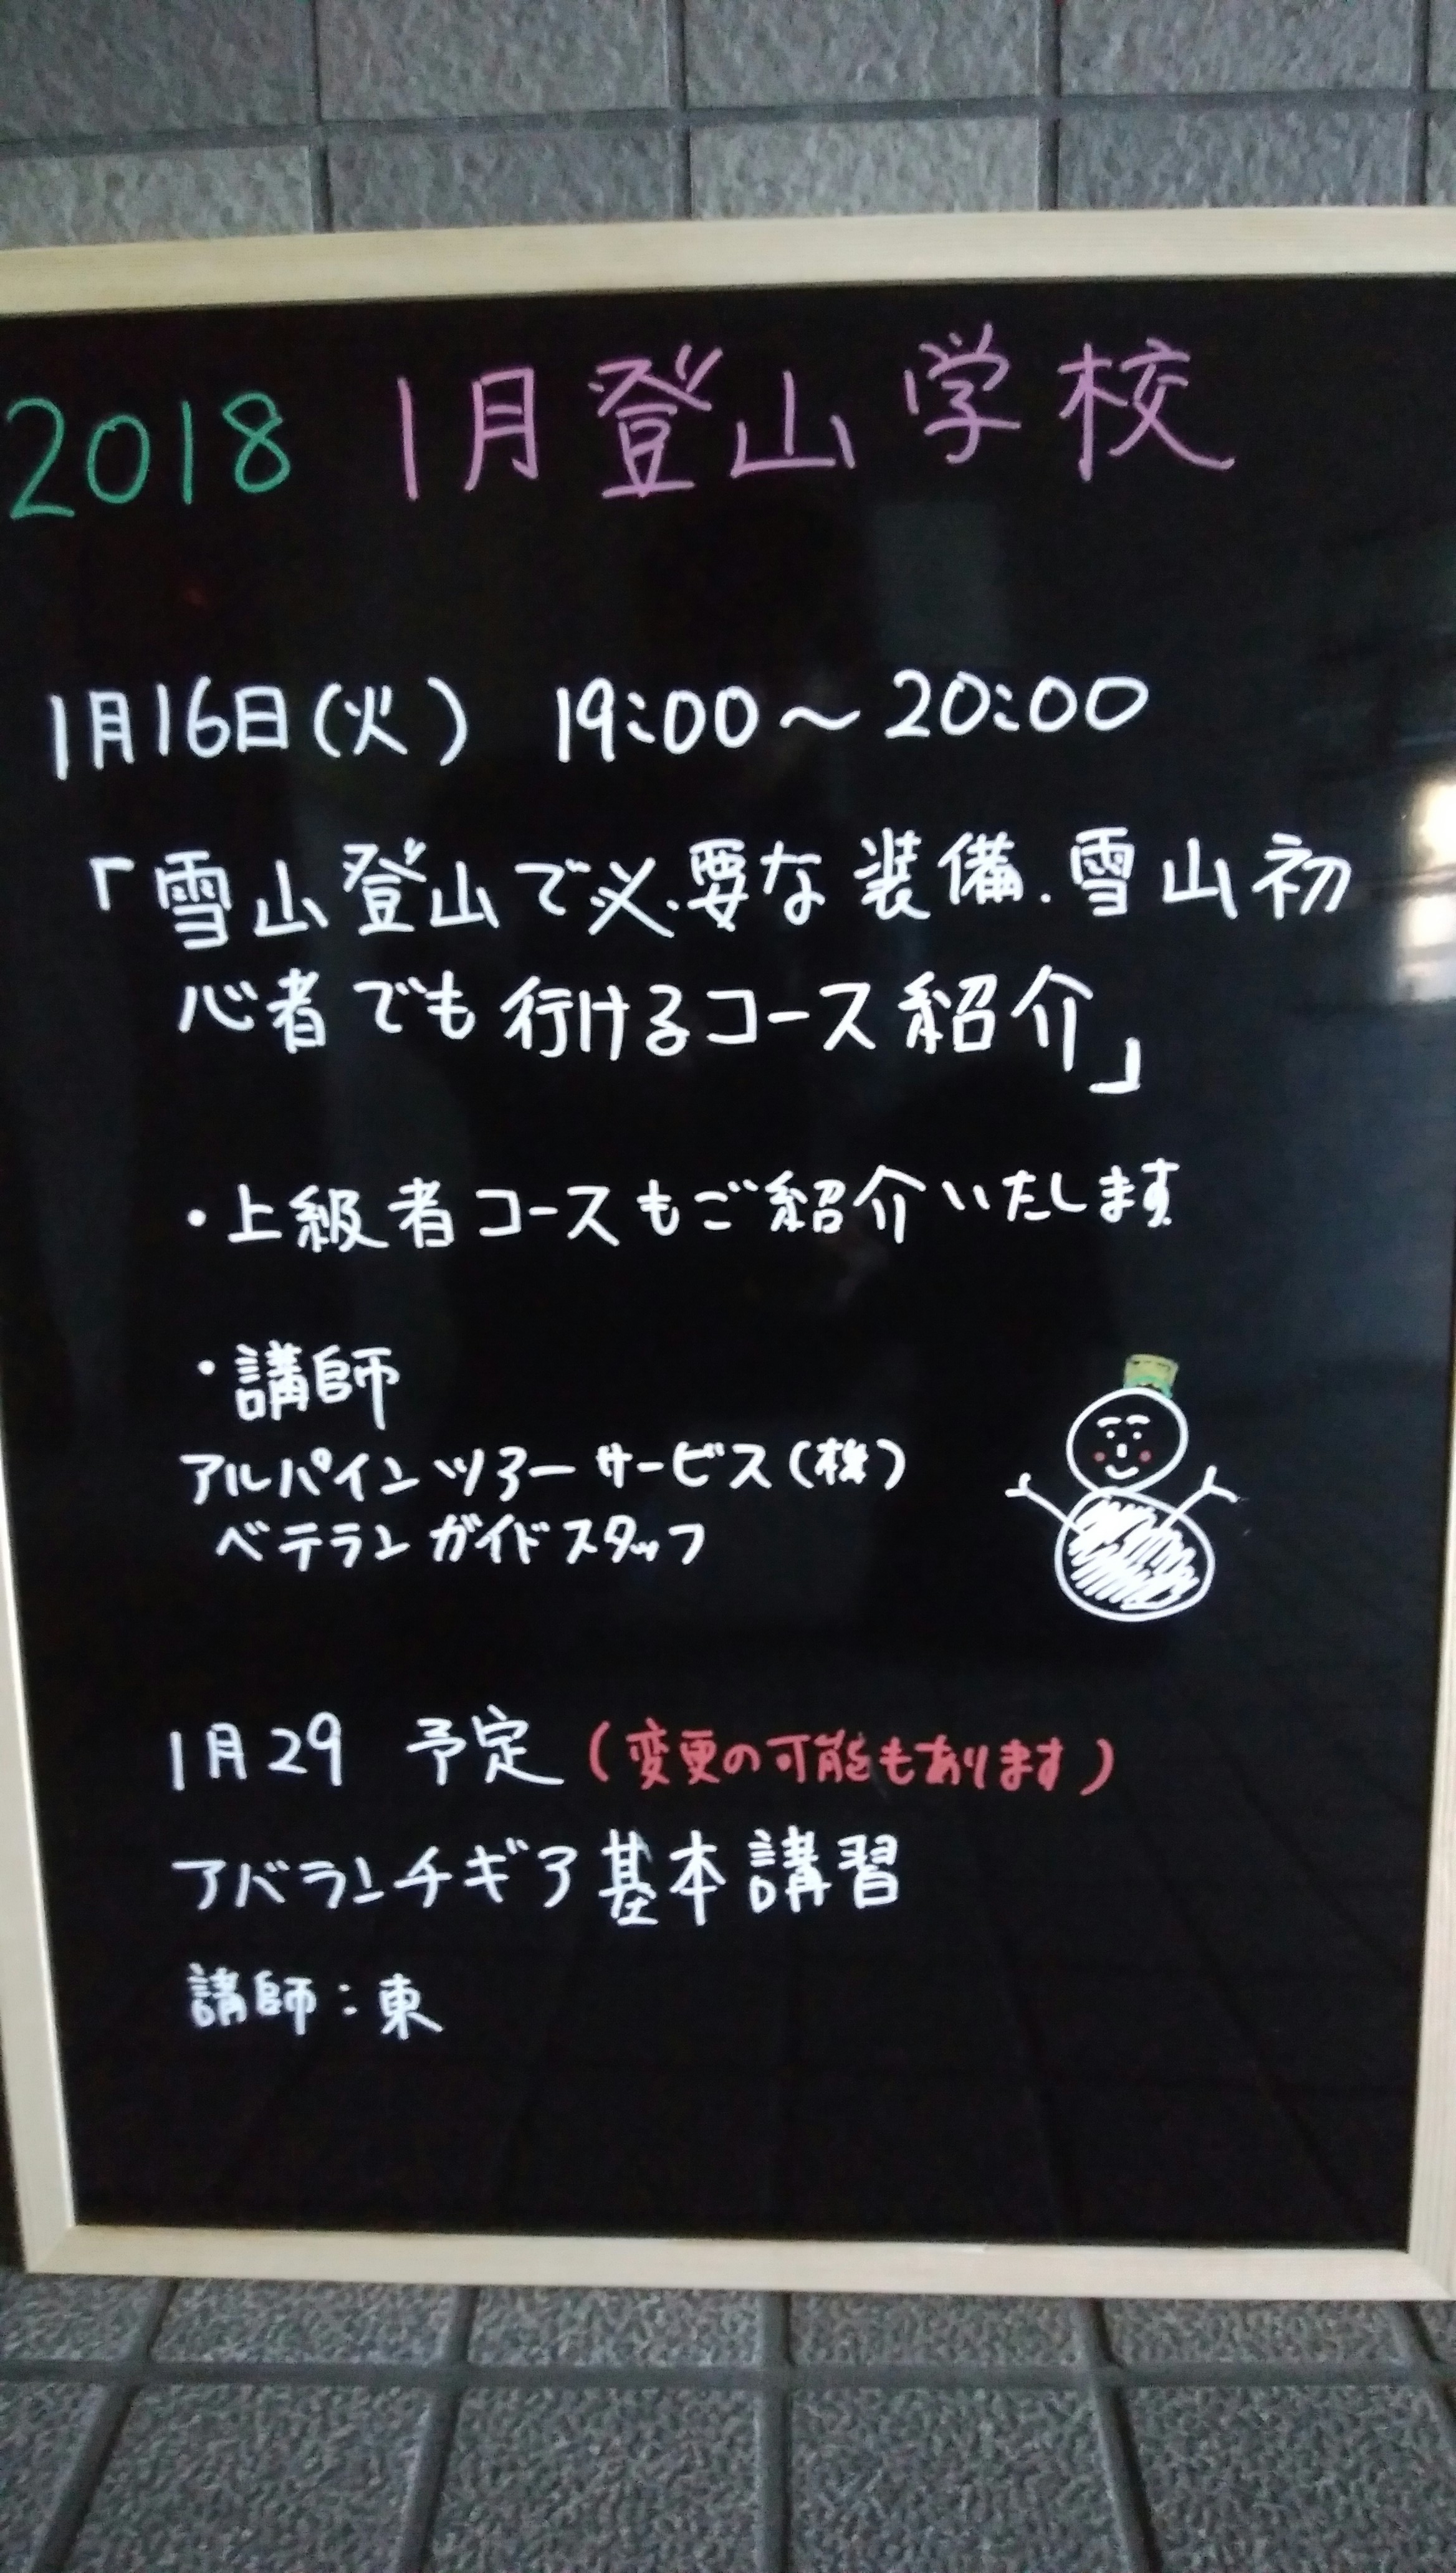 2018 1月登山学校
1月16日(火) 19:00～20:00
「雪山登山で必要な装備.雪山初
心者でも行けるコース紹介」
・上級者コースもご紹介いたします
・講師
アルパインツアーサービス(株)
ベテランガイドスタッフ
1月29 予定(変更の可能もあります)
アバランチギア基本講習
講師:東